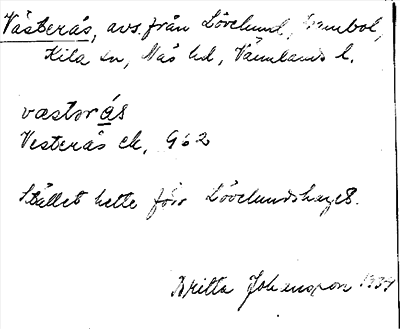 Västerås, avs. från Lövelund,
Kila sn, Näs hd, Värmlands l.
væstərás
Vesterås ek, G 62
Stället hette förr Lövelundshaget.
Britta Johansson 1934